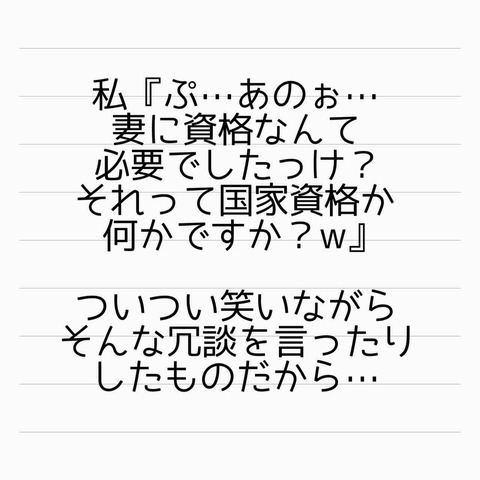 私『ぷ…あのぉ…
妻に資格なんて
必要でしたっけ？
それって国家資格か
何かですか？w』
ついつい笑いながら
そんな冗談を言ったり
したものだから…